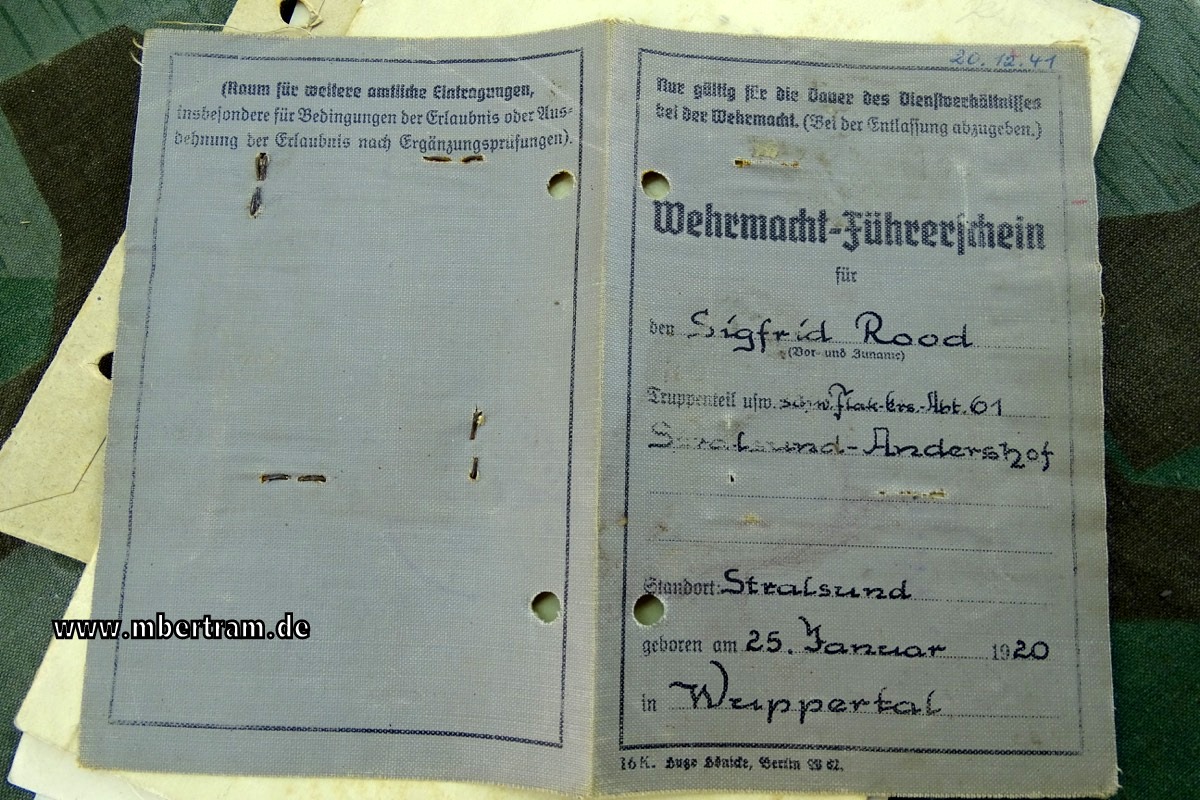 (Raum für weitere amtliche Eintragungen,
insbesondere für Bedingungen der Erlaubnis oder Aus-
dehnung der Erlaubnis nach Ergänzungsprüfungen).
20.12.41
Nur gültig für die Dauer des Dienstverhältnisses
bei der Wehrmacht. (Bei der Entlassung abzugeben.)
Wehrmacht-Führerschein
für
den Sigfrid Rood
(Vor- und Zuname)
Truppenteil usw. schw. Flak-Ers.-Abt. 61
Stralsund-Andershof
Standort: Stralsund
geboren am 25. Januar 1920
in Wuppertal
Hugo Hönicke, Berlin SW 62.
www.mbertram.de